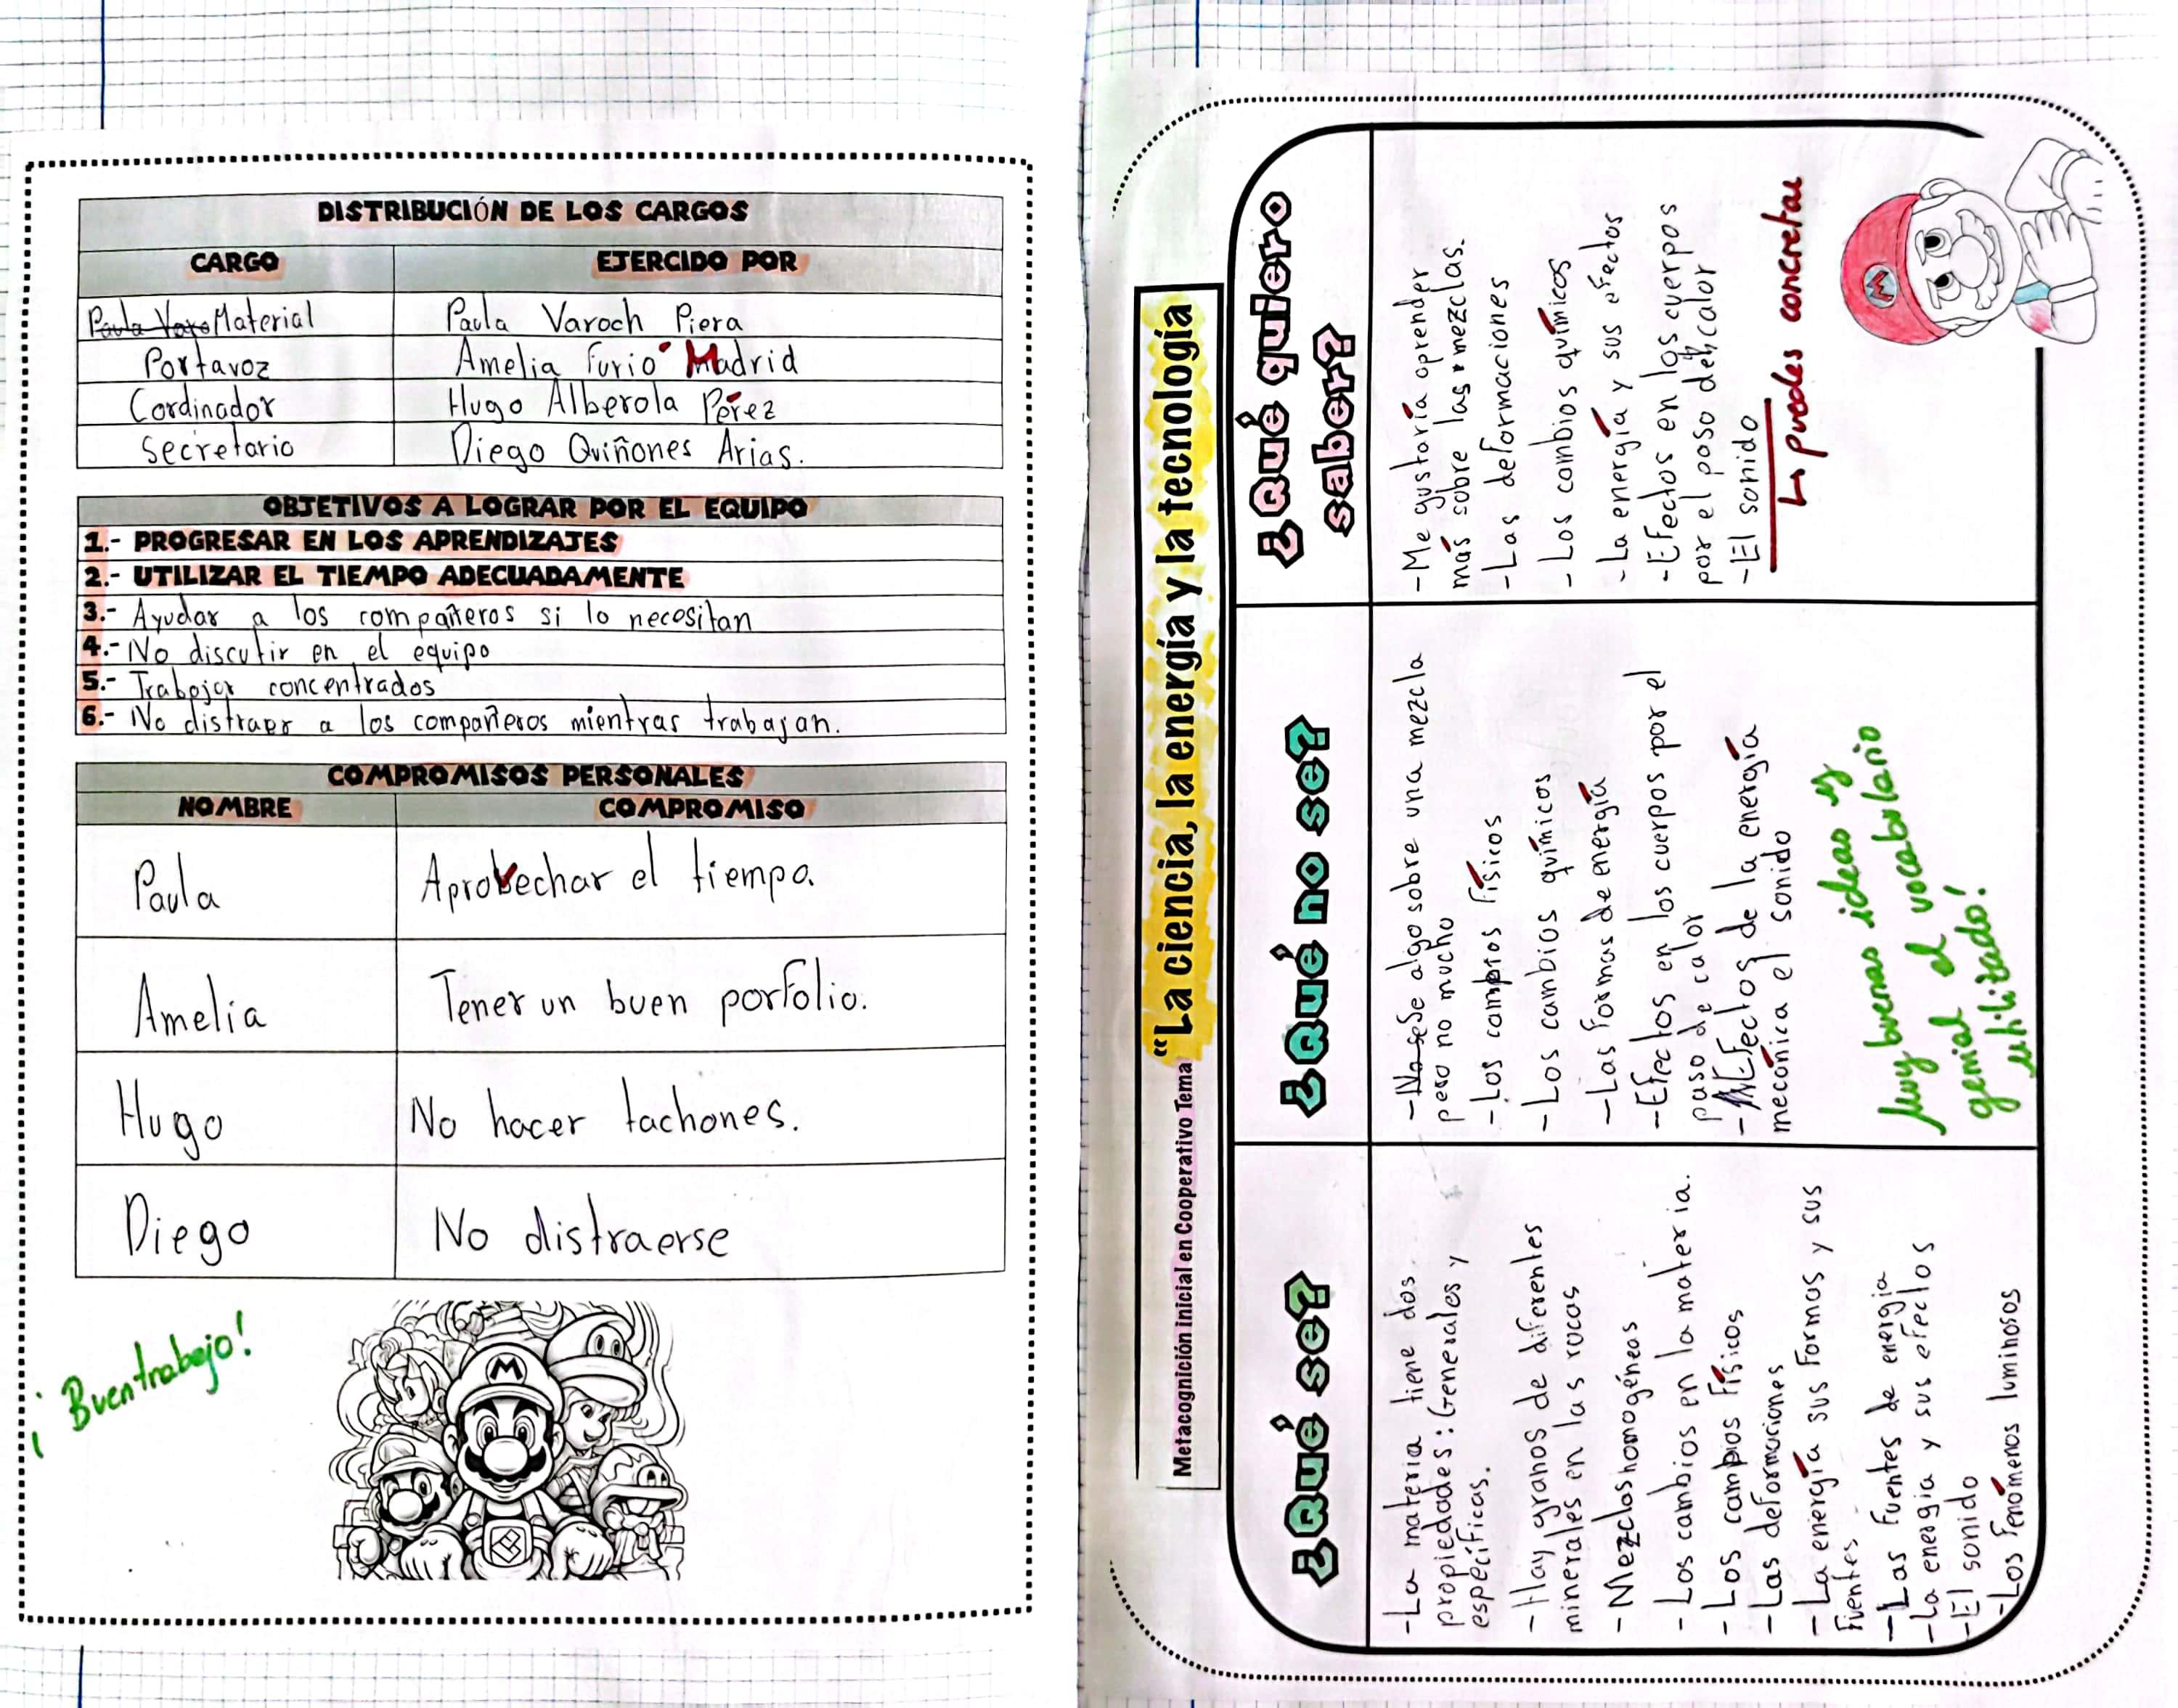 DISTRIBUCIÓN DE LOS CARGOS
CARGO EJERCIDO POR
Material Paula Varoch Piera
Portavoz Amelia Furió Madrid
Cordinador Hugo Alberola Pérez
Secretario Diego Quiñones Arias.
OBJETIVOS A LOGRAR POR EL EQUIPO
1.- PROGRESAR EN LOS APRENDIZAJES
2.- UTILIZAR EL TIEMPO ADECUADAMENTE
3.- Ayudar a los compañeros si lo necesitan
4.- No discutir en el equipo
5.- Trabajar concentrados
6.- No distraer a los compañeros mientras trabajan.
COMPROMISOS PERSONALES
NOMBRE COMPROMISO
Paula Aprovechar el tiempo.
Amelia Tener un buen porfolio.
Hugo No hacer tachones.
Diego No distraerse
¡Buen trabajo!
M
Metacognición inicial en Cooperativo Tema "La ciencia, la energía y la tecnología
¿Qué se?
-La materia tiene dos
propiedades: Generales y
específicas.
-Hay granos de diferentes
minerales en las rocas
-Mezclas homogéneas
-Los cambios en la materia.
-Los cambios físicos
-Las deformaciones
-La energía sus formas y sus
fuentes
-Las fuentes de energia
-La energia y sus efectos
-El sonido
-Los fenómenos luminosos
¿Qué no se?
-No se Se algo sobre una mezcla
pero no mucho
-Los cambios físicos
-Los cambios químicos
-Las formas de energía
-Efectos en los cuerpos por el
paso de calor
-Efectos de la energía
mecánica el sonido
Muy buenas ideas y
genial el vocabulario
utilitzado!
¿Qué quiero
saber?
-Me gustaría aprender
más sobre las mezclas.
-Las deformaciones
-Los cambios químicos
-La energía y sus efectos
-Efectos en los cuerpos
por el paso de calor
-El sonido
↳ puedes concretar
M